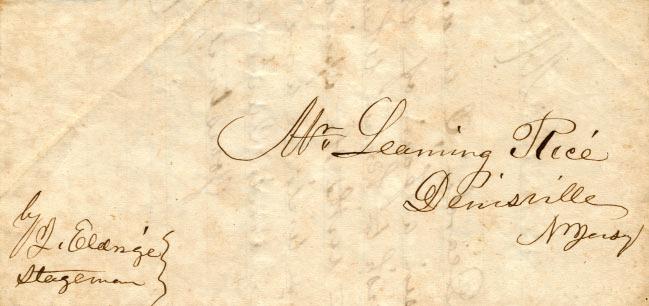 Mr. Leaming Rice
Denisville
N Jersy
by J. Eldrige
Stageman